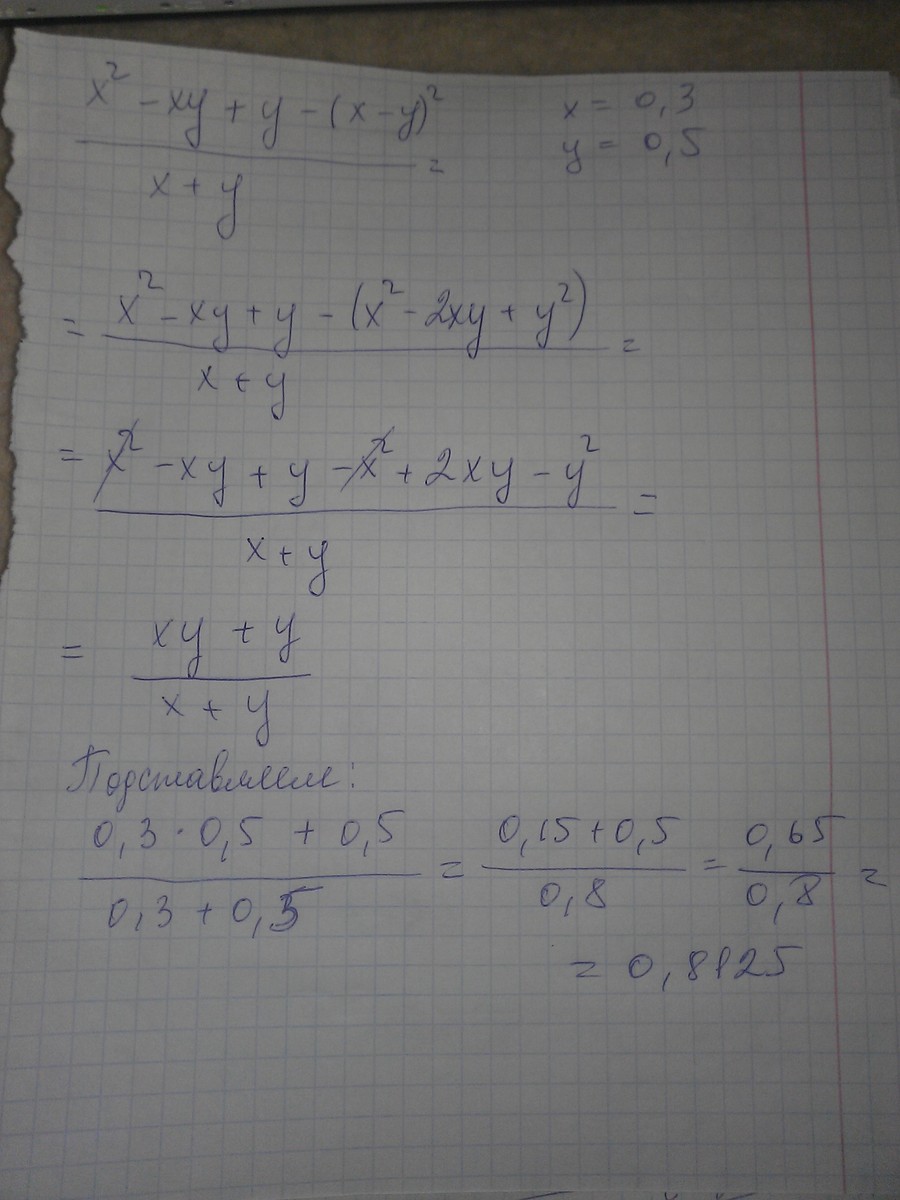 x² - xy + y - (x - y)² x = 0,3
y = 0,5
=
x + y
= x² - xy + y - (x² - 2xy + y²) =
x + y
= x² - xy + y - x² + 2xy - y² =
x + y
= xy + y
x + y
Подставляем:
0,3 · 0,5 + 0,5 = 0,15 + 0,5 = 0,65 =
0,3 + 0,5 0,8 0,8
= 0,8125